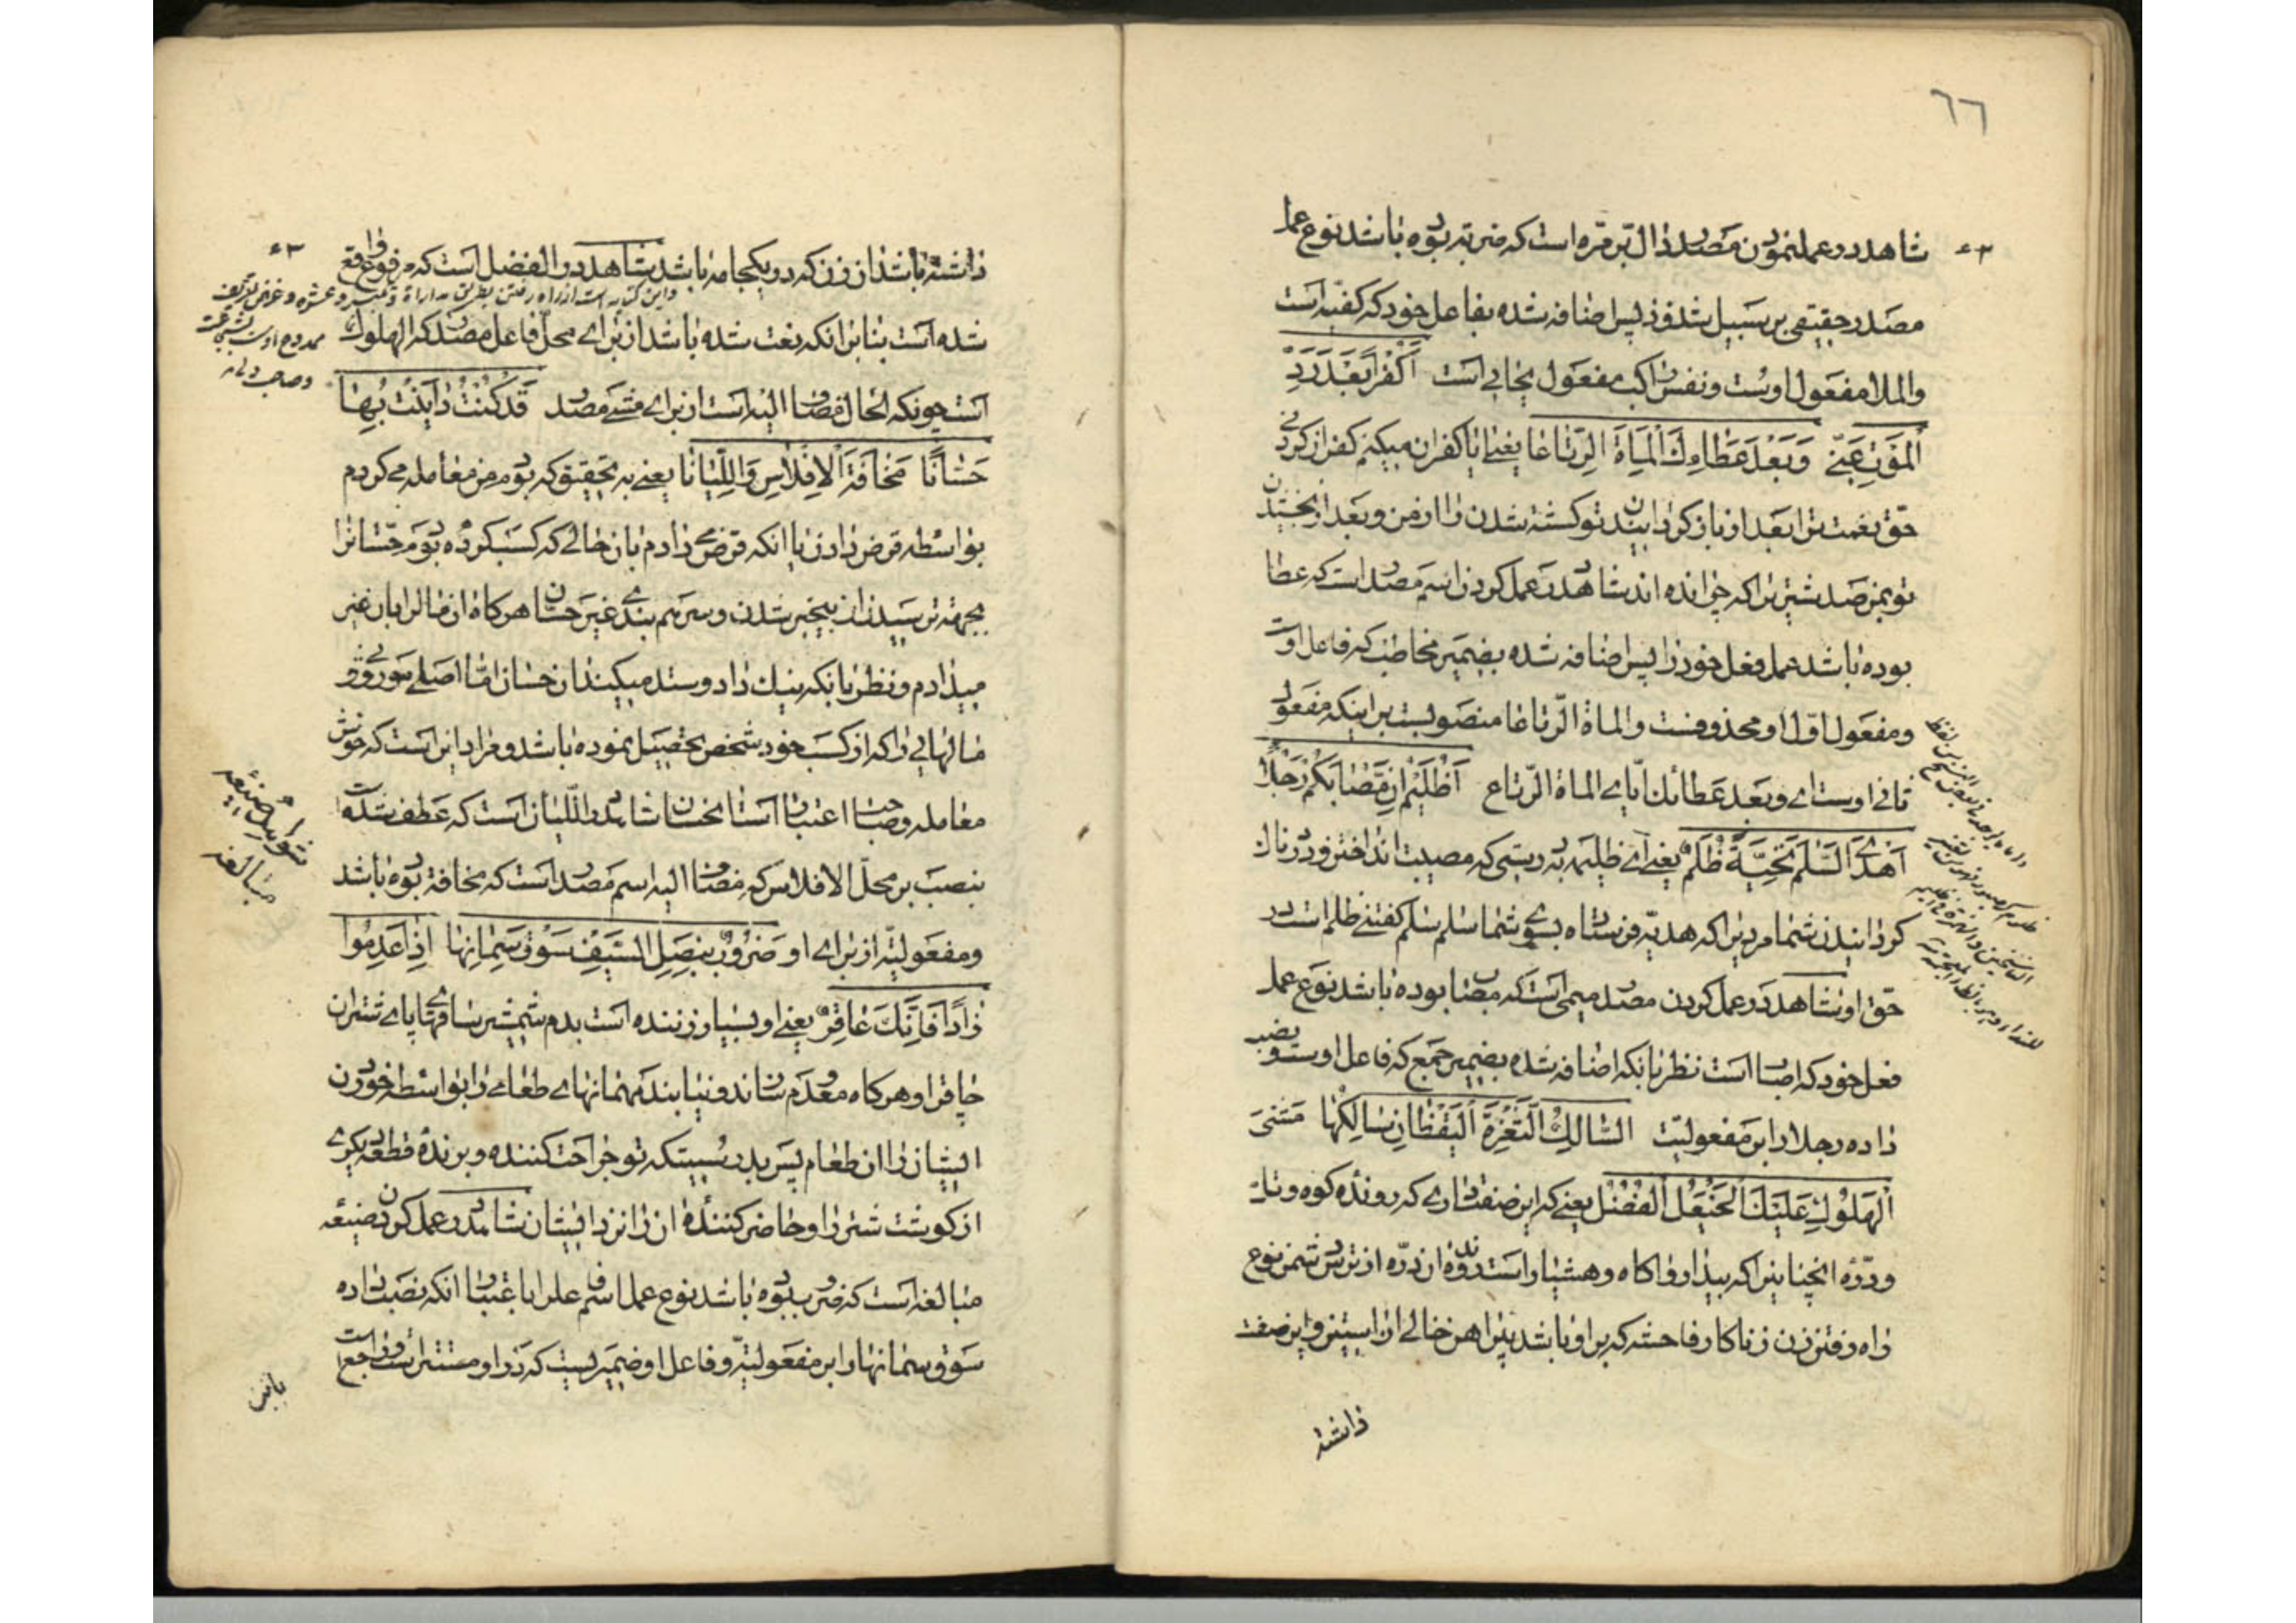 ٦٦
شاهد در عمل نمودن مصدر دال بر مرّه است که ضربه بوده باشد نوع عمل
مصدر حقیقی بر سبیل شذوذ پس اضافه شده بفاعل خود که کفّیه است
والملا مفعول اوست ونفس راکب مفعول یحایی است أَكُفْراً بَعْدَ رَدِّ
الْمَوْتِ عَنّی وَبَعْدَ عَطَاءِكَ الْمِاَةَ الرِّتَاعَا یعنی ایا کفران میکنم کفران کردنی
حقّ نعمت ترا بعد از باز کردانیدن تو کشته شدن را از من وبعد از بخشیدن
تو بمن صد شتر را که چرانده اند شاهد در عمل کردن اسم مصدر است که عطا
بوده باشد عمل فعل خود را پس اضافه شده بضمیر مخاطب که فاعل اوست
ومفعول اوّل او محذوفست والماة الرّتاعا منصوبست بر اینکه مفعول
ثانی اوست ای وبعد عطائك ایّای الماة الرّتاع أَظُلَیْمُ اِنَّ مُصَابَكُمْ رَجُلاً
أَهْدَی السَّلَمَ تَحِیَّةً ظُلْمٌ یعنی ای ظلیمه بدرستی که مصیبت انداختن ودر نال
کردانیدن شما مردیرا که هدیّه فرستاده بسوی شما سلم سلم کفتنی ظلم است در
حقّ او شاهد در عمل کردن مصدر میمی است که مصاب بوده باشد نوع عمل
فعل خود که اصاب است نظر بانکه اضافه شده بضمیر جمع که فاعل اوست ونصب
داده رجلا را بر مفعولیّت السَّالِكُ الثَّغْرَةَ الْیَقْظَانِ سَالِكُهَا مَشْیَ
الْهَلُوكِ عَلَیْكَ الْخَیْعَلُ الْفُضُلُ یعنی که این صفت داری که رونده کوه وتل
ودرّه انچنانیرا که بیدار واکاه وهشیار است رونده ان درّه از ترس دشمن نوع
راه رفتن زن زناکار فاحشه که بر او باشد پیراهن خالی از استین واین صفت
داشته
داشته باشد ان زن که در یکجامه باشد شاهد در الفضل است که مرفوع واقع
شده است بنابر انکه نعت شده باشد از برای محل فاعل مصدر که الهلوك
است چونکه الحال مضاف الیه است از برای مشی مصدر قَدْ كُنْتُ دَایَنْتُ بِهَا
حَسَّانًا مَخَافَةَ الْاِفْلَاسِ وَاللَّیَّانَا یعنی به تحقیق که بودم من معامله می کردم
بواسطه قرض دادن یا انکه قرض می دادم بان حالی که کسب کرده بودم حسّانرا
بجهة ترسیدن از بیچیز شدن وسرهم بندی غیر حسّان هرکاه ان مال را بان غیر
میدادم ونظر بانکه نیك داد وستد میکند ان حسان امّا اصلی موروثی و
مالهایی را که از کسب خود شخص تحصیل نموده باشد ومراد این است که خوش
معامله وصاحب اعتبار است انحسان شاهد در اللّیان است که عطف شده است
بنصب بر محلّ الافلاس که مضاف الیه اسم مصدر است که مخافة بوده باشد
ومفعولیّه از برای او ضَرُوبٌ بِنَصْلِ السَّیْفِ سُوقَ سِمَانِهَا اِذَا عَدِمُوا
زَاداً فَاِنَّكَ عَاقِرٌ یعنی او بسیار زننده است بدم شمشیر ساقهای پای شتران
چاقرا وهرکاه معدوم سازند ونیابند مهمانهای طعامی را بواسطه خوردن
ایشان را ان طعام پس بدرستیکه تو جراحت کننده وبرنده قطعه بزرکی
از کوشت شتر را وحاضر کنندهٔ ان را نزد ایشان شاهد در عمل کردن صیغه
مبالغه است که ضروب بوده باشد نوع عمل اسم فاعل را باعتبار انکه نصب داده
سوق سمانها را بر مفعولیّة وفاعل او ضمیریست که در او مستتر است وراجع است
شواهد صیغه
مبالغه